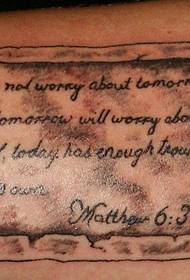 not worry about tomorr
omorrow will worry abou
f, today has enough trou
s own
Matthew 6:3